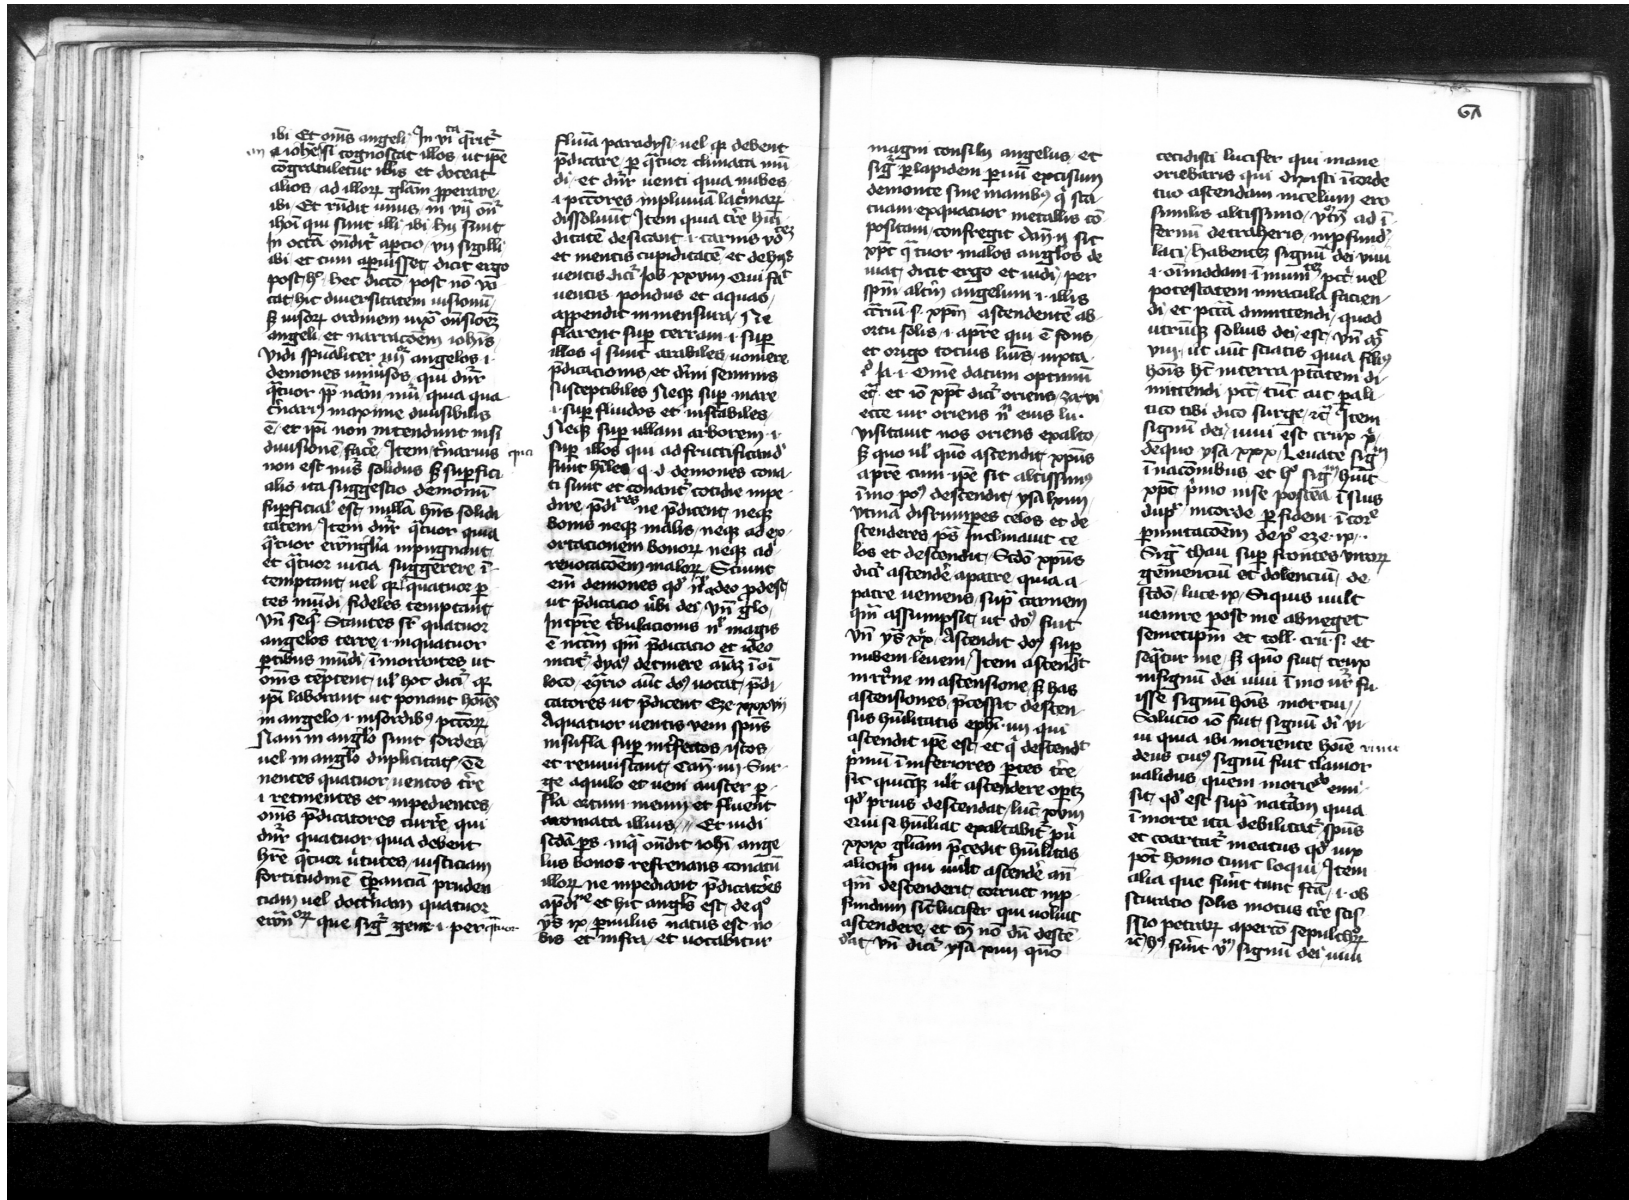 ibi Et om̄s angeli In viᵗᵃ q̄rit᷑
an iohēs si cognoscat illos ut ip̄e
cōgratuletur illis et doceat
alios ad illoꝝ gl̄am ꝓperare
ibi Et rn̄dit unus in vij on̄r
ihoī qui sunt illi ibi hij sunt
In octā on̄dit᷑ apcio vij sigilli
ibi et cum aperuisset dicit ergo
post hͦ hec dictō post nō vo
cat hic diversitatem visionū
sꝫ visoꝝ ordinem iuxᵃ on̄sioēꝫ
angeli et narracōem iohis
Vidi sp̄ualiter iiijᵒʳ angelos .i.
demones univ̄sos qui dn̄r
q̄tuor ꝓp̄ nām nūi quia qua
t̄narius maxime divisibilis
ē et ip̄i non intendunt nisi
divisionē facere Item t̄narius quia
non est nūs solidus sꝫ suꝑfici
alis ita suggestio demonū
suꝑficial est nullā hn̄s solidi
tatem Item dn̄r q̄tuor quia
q̄tuor ewāgl̄ia inpugnant
et q̄tuor vicia suggerere ī
temptant vel qꝛ q̄tuor ꝑ
tes mūdi fideles temptant
vn̄ seqͬ Stantes sr̄ quatuor
angelos terre .i. in quatuor
ꝑtibus mūdi īmorantes ut
om̄s tēptent ul̓ hoc dicit qꝛ
ip̄i laborant ut ponant hoīes
in angelo .i. in sordibꝰ pctōꝝ
Nam in angl̓o sunt sordes
vel in angl̓o duplicitas Te
nentes quatuor ventos t̄re
.i. retinentes et inpedientes
om̄s p̄dicatores currere qui
dn̄r quatuor quia debent
hr̄e q̄tuor v̄tutes iusticiam
fortitudinē tꝑanciā pruden
ciam vel doctrinam quatuor
ewāᵒʳ que sigᷓ gent̄ .i. per q̄tuor
fluīa paradysi vel qꝛ debent
p̄dicare ꝑ q̄tuor climata mū
di et dn̄r venti quia nubes
.i. pctōres in pluviā lacrimaꝝ
dissolvūt Item quia t̄re humi
ditatē desicant .i. carnis vo
et mentis cupiditatē et de hijs
ventis dicit᷑ Job xxviij Qui fᵗ
ventis pondus et aquas
appendit in mensura Ne
flarent suꝑ terram .i. suꝑ
illos q̄ sunt arabiles vomere
p̄dicacionis et divini seminis
susceptibiles Neqꝫ suꝑ mare
.i. suꝑ fluidos et instabiles
Neqꝫ suꝑ ullam arborem .i.
suꝑ illos qui ad fructificandū
sunt hīles q. d. demones cona
ti sunt et conant᷑ cotidie inpe
dire p̄diʳᵉˢ ne p̄dicent neqꝫ
bonis neqꝫ malis neqꝫ ad ex
ortacionem bonoꝝ neqꝫ ad
revocacōem maloꝝ Sciunt
enī demones qd̓ n̓ adeo ꝓdest
ut p̄dicacio v̓bi dei vn̄ glo
In tp̄re t̓bulacionis n̓l magis
ē nccm̄ qm̄ p̄dicacio et ideo
incit᷑ dyas detinere aīaꝫ ī oī
loco eq̄rio aūt dn̄s vocat p̄di
catores ut p̄dicent Eze xxxvij
A quatuor ventis veni spūs
insufla suꝑ int̓fectos istos
et reviviscant Cant iiij Sur
ge aquilo et veni auster ꝑ
fla ortum meum et fluent
aromata illius Et vidi
scd̓a ps in q̄ on̄dit iohī ange
lus bonos refrenans conatū
illoꝝ ne inpediant p̄dicatores
a p̄diⁿᵉ et hic angl̓s est de qͦ
ys̄ ix parvulus natus est no
bis et infra et vocabitur
67
magni consilij angelus et
sigᷓ ꝑ lapidem ꝑvū excisum
de monte sine manibꝰ q̄ sta
tuam ex quatuor metallis cō
positam confregit dan ij sic
xp̄c q̄tuor malos angl̓os de
vicit dicit ergo et vidi per
spm̄ alt̓m angelum .i. illis
cr̄iū s. xp̄m ascendentē ab
ortu solis .i. a pr̄e qui ē fons
et origo tocius luīs iuxta
iͦ Ja .i. Om̄e datum optimū
eᷓ et iō xp̄c dicit᷑ oriens zar vi
ecce vir oriens nͫ eius lu .
visitavit nos oriens ex alto
sꝫ quo ul̓ quōo ascendit xp̄us
a pr̄e cum ip̄e sit altissimꝰ
ī mo poꝰ descendit ysa lxiiij
utinā disrumperes celos et de
scenderes ps̄ Inclinavit ce
los et descendit Scd̓o xp̄us
dicit᷑ ascendere a patre quia a
patre veniens supᷓ carnem
qm̄ assumpsit ut dn̄s fuit
vn̄ ys̄ xix Ascendit dn̄s suꝑ
nubem levem Item ascendit
in rr̄one in ascensione sꝫ has
ascensiones p̄cessit descen
sus hūilitatis eph̓ iiij qui
ascendit ip̄e est et q̄ descendit
p̄mū ī inferiores ꝑtes t̄re
sic quicūqꝫ ul̓t ascendere oꝑtꝫ
qd̓ prius descendat luc xviij
Qui se hūiliat exaltabit᷑ pū
xxix gl̄iam p̄cedit hūilitas
alioqͥn qui vult ascendere an̄
qm̄ descenderit corruet in ꝓ
fundum sic lucifer qui voluit
ascendere et tn̄ nō dū descē
dat vn̄ dicit᷑ ysa xiiij quōo
cecidisti lucifer qui mane
oriebaris qui dixisti ī corde
tuo ascendam in celum ero
similis altissimo vͬtn̄ ad ī
fernū detraheris in ꝓfundū
laci Habentem signū dei vivi
.i. oīmodam īmuniᵗᵉᵐ pctī vel
potestatem miracula facien
di et pctā dimittendi quod
utrūqꝫ solius dei est vn̄ mͬ
viij ut aūt sciatis quia filius
hoīs hꝫ in terra ptātem di
mittendi pctā tūc ait ꝑali
tico tibi dico surge ⁊c̄ Item
signū dei vivi est crux xⁱ
de quo ysa xxx Levate sigⁿᵐ
ī nacōnibus et hͦ sigⁿᵐ hūit
xp̄c p̄mo in se postea ī suis
dupͬ in corde ꝑ fidem ī corᵉ
ꝑ imitacōem de pͦ eze ix
Sigᷓ thau suꝑ frontes viroꝝ
gementiū et dolenciū de
scd̓o luce ix Siquis vult
venire post me abneget
semetipm̄ et toll̓ crū s. et
seqͣtur me sꝫ quō fuit crux
in signū dei vivi ī mo vr̄ fu
isse signū hoīs mortui
Solucio iō fuit signū di vi
vi quia ibi moriente hoīe vivit
deus cuiꝰ signū fuit clamor
validus quem moriēdo emi
sit qd̓ est supᷓ natᷓm quia
ī morte ita debilitat᷑ spūs
et coartat᷑ meatus qd̓ vix
pōt homo tunc loqui Item
alia que fūnt tunc sctā .i. ob
scuratio solis motus t̄re scis
sio petraꝝ apertō sepulchroꝝ
⁊c̄ hͥ fūnt vͫ signū dei vivi